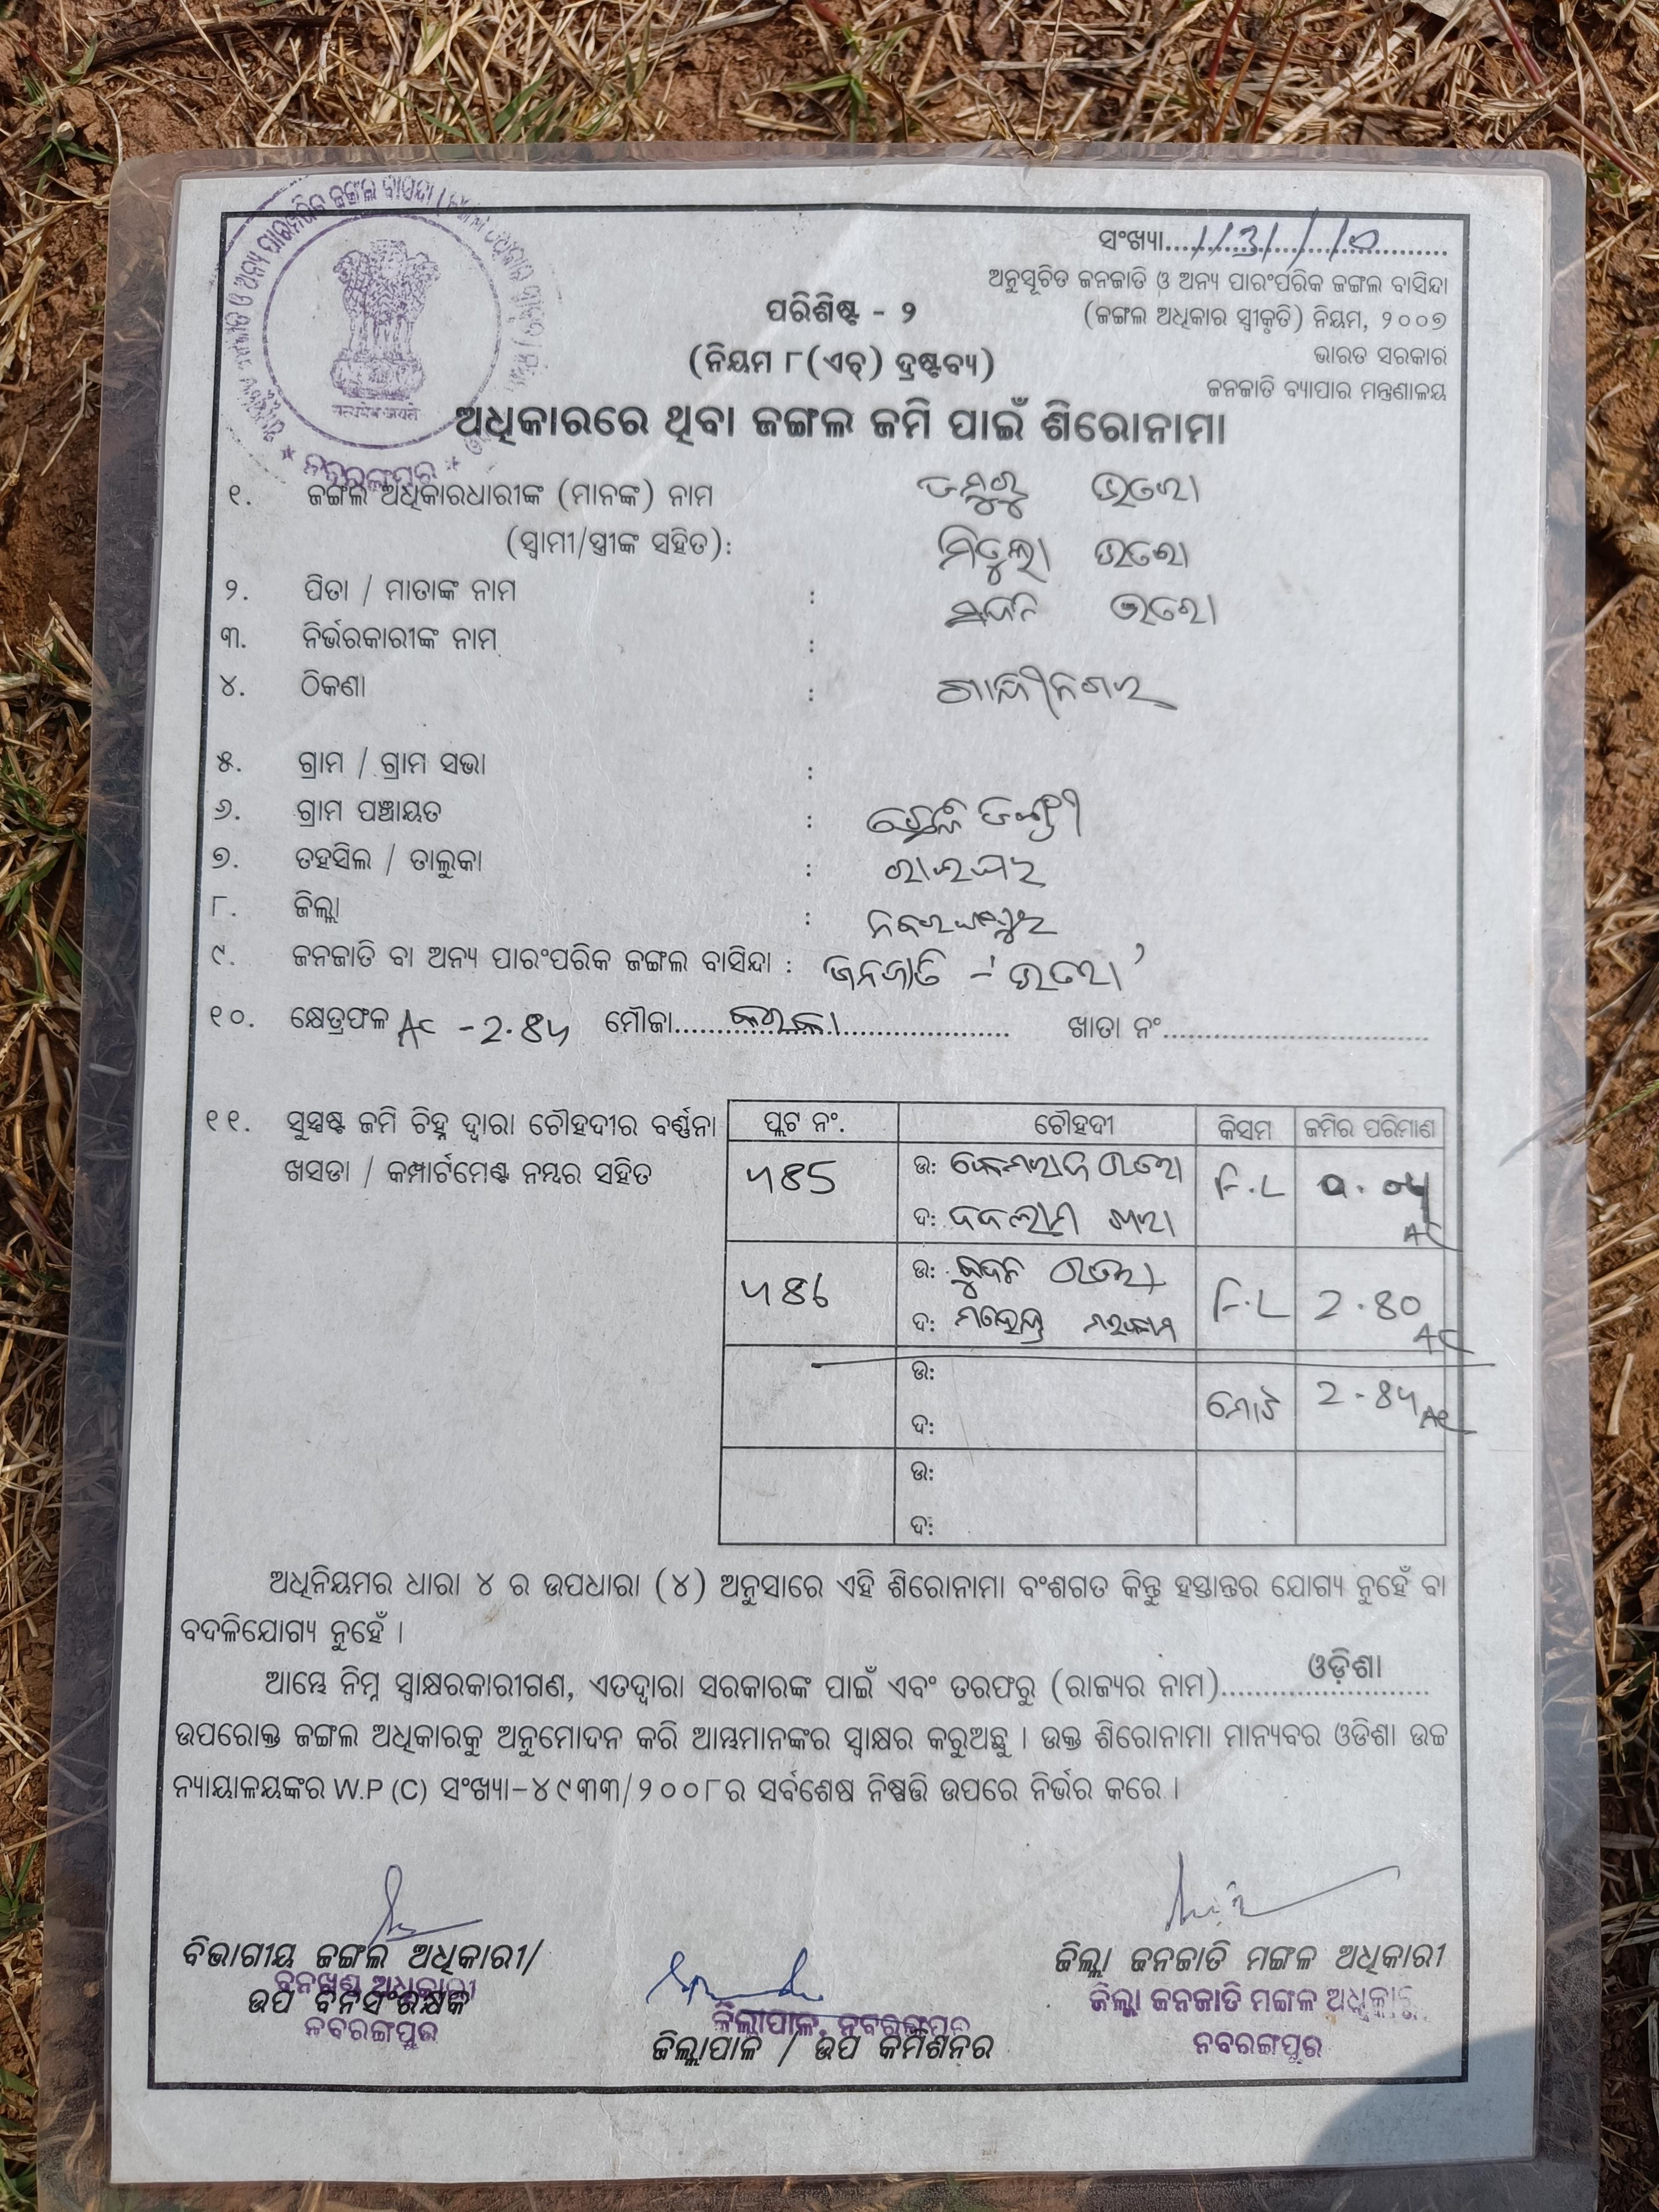 ସଂଖ୍ୟା
ଅନୁସୂଚିତ ଜନଜାତି ଓ ଅନ୍ୟ ପାରଂପରିକ ଜଙ୍ଗଲ ବାସିନ୍ଦା
(ଜଙ୍ଗଲ ଅଧିକାର ସ୍ୱୀକୃତି) ନିୟମ, ୨୦୦୭
ଭାରତ ସରକାର
ଜନଜାତି ବ୍ୟାପାର ମନ୍ତ୍ରଣାଳୟ
ପରିଶିଷ୍ଟ - ୨
(ନିୟମ ୮(ଏଚ୍) ଦ୍ରଷ୍ଟବ୍ୟ)
ଅଧିକାରରେ ଥିବା ଜଙ୍ଗଲ ଜମି ପାଇଁ ଶିରୋନାମା
ନବରଙ୍ଗପୁର
୧. ଜଙ୍ଗଲ ଅଧିକାରଧାରୀଙ୍କ (ମାନଙ୍କ) ନାମ ଡମ୍ବୁରୁ ଭତରା
(ସ୍ୱାମୀ/ସ୍ତ୍ରୀଙ୍କ ସହିତ): ମିଟୁଲା ଭତରା
୨. ପିତା / ମାତାଙ୍କ ନାମ : ଭତରା
୩. ନିର୍ଭରକାରୀଙ୍କ ନାମ :
୪. ଠିକଣା : ଗାନ୍ଧୀନଗର
୫. ଗ୍ରାମ / ଗ୍ରାମ ସଭା :
୬. ଗ୍ରାମ ପଞ୍ଚାୟତ :
୭. ତହସିଲ / ତାଲୁକା : ରାଇଘର
୮. ଜିଲ୍ଲା : ନବରଙ୍ଗପୁର
୯. ଜନଜାତି ବା ଅନ୍ୟ ପାରଂପରିକ ଜଙ୍ଗଲ ବାସିନ୍ଦା : ଜନଜାତି - 'ଭତରା'
୧୦. କ୍ଷେତ୍ରଫଳ Ac - 2.୫୪ ମୌଜା ଖାତା ନଂ
୧୧. ସୁସ୍ପଷ୍ଟ ଜମି ଚିହ୍ନ ଦ୍ୱାରା ଚୌହଦୀର ବର୍ଣ୍ଣନା
ଖସଡା / କମ୍ପାର୍ଟମେଣ୍ଟ ନମ୍ବର ସହିତ
ପ୍ଲଟ ନଂ. ଚୌହଦୀ କିସମ ଜମିର ପରିମାଣ
ଉ: ଭତରା F.L
ଦ: AC
ଉ: ଭତରା F.L
ଦ: ମହେନ୍ଦ୍ର ମରକାମ AC
ଉ: ମୋଟ
ଦ:
ଉ:
ଦ:
ଅଧିନିୟମର ଧାରା ୪ ର ଉପଧାରା (୪) ଅନୁସାରେ ଏହି ଶିରୋନାମା ବଂଶଗତ କିନ୍ତୁ ହସ୍ତାନ୍ତର ଯୋଗ୍ୟ ନୁହେଁ ବା
ବଦଳିଯୋଗ୍ୟ ନୁହେଁ ।
ଆମ୍ଭେ ନିମ୍ନ ସ୍ୱାକ୍ଷରକାରୀଗଣ, ଏତଦ୍ୱାରା ସରକାରଙ୍କ ପାଇଁ ଏବଂ ତରଫରୁ (ରାଜ୍ୟର ନାମ) ଓଡ଼ିଶା
ଉପରୋକ୍ତ ଜଙ୍ଗଲ ଅଧିକାରକୁ ଅନୁମୋଦନ କରି ଆମ୍ଭମାନଙ୍କର ସ୍ୱାକ୍ଷର କରୁଅଛୁ । ଉକ୍ତ ଶିରୋନାମା ମାନ୍ୟବର ଓଡିଶା ଉଚ୍ଚ
ନ୍ୟାୟାଳୟଙ୍କର W.P (C) ସଂଖ୍ୟା-୪୯୩୩/୨୦୦୮ର ସର୍ବଶେଷ ନିଷ୍ପତ୍ତି ଉପରେ ନିର୍ଭର କରେ ।
ବିଭାଗୀୟ ଜଙ୍ଗଲ ଅଧିକାରୀ/
ବନଖଣ୍ଡ ଅଧିକାରୀ
ଉପ ବନସଂରକ୍ଷକ
ନବରଙ୍ଗପୁର
ଜିଲ୍ଲାପାଳ, ନବରଙ୍ଗପୁର
ଜିଲ୍ଲାପାଳ / ଉପ କମିଶନର
ଜିଲ୍ଲା ଜନଜାତି ମଙ୍ଗଳ ଅଧିକାରୀ
ଜିଲ୍ଲା ଜନଜାତି ମଙ୍ଗଳ ଅଧିକାରୀ
ନବରଙ୍ଗପୁର